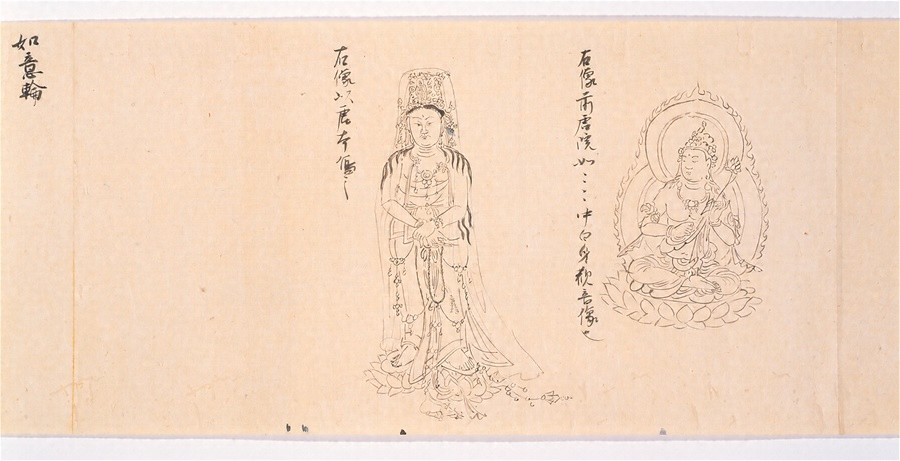 右像前唐院如〻〻中白身観音像也
右像以唐本傷之
如意輪